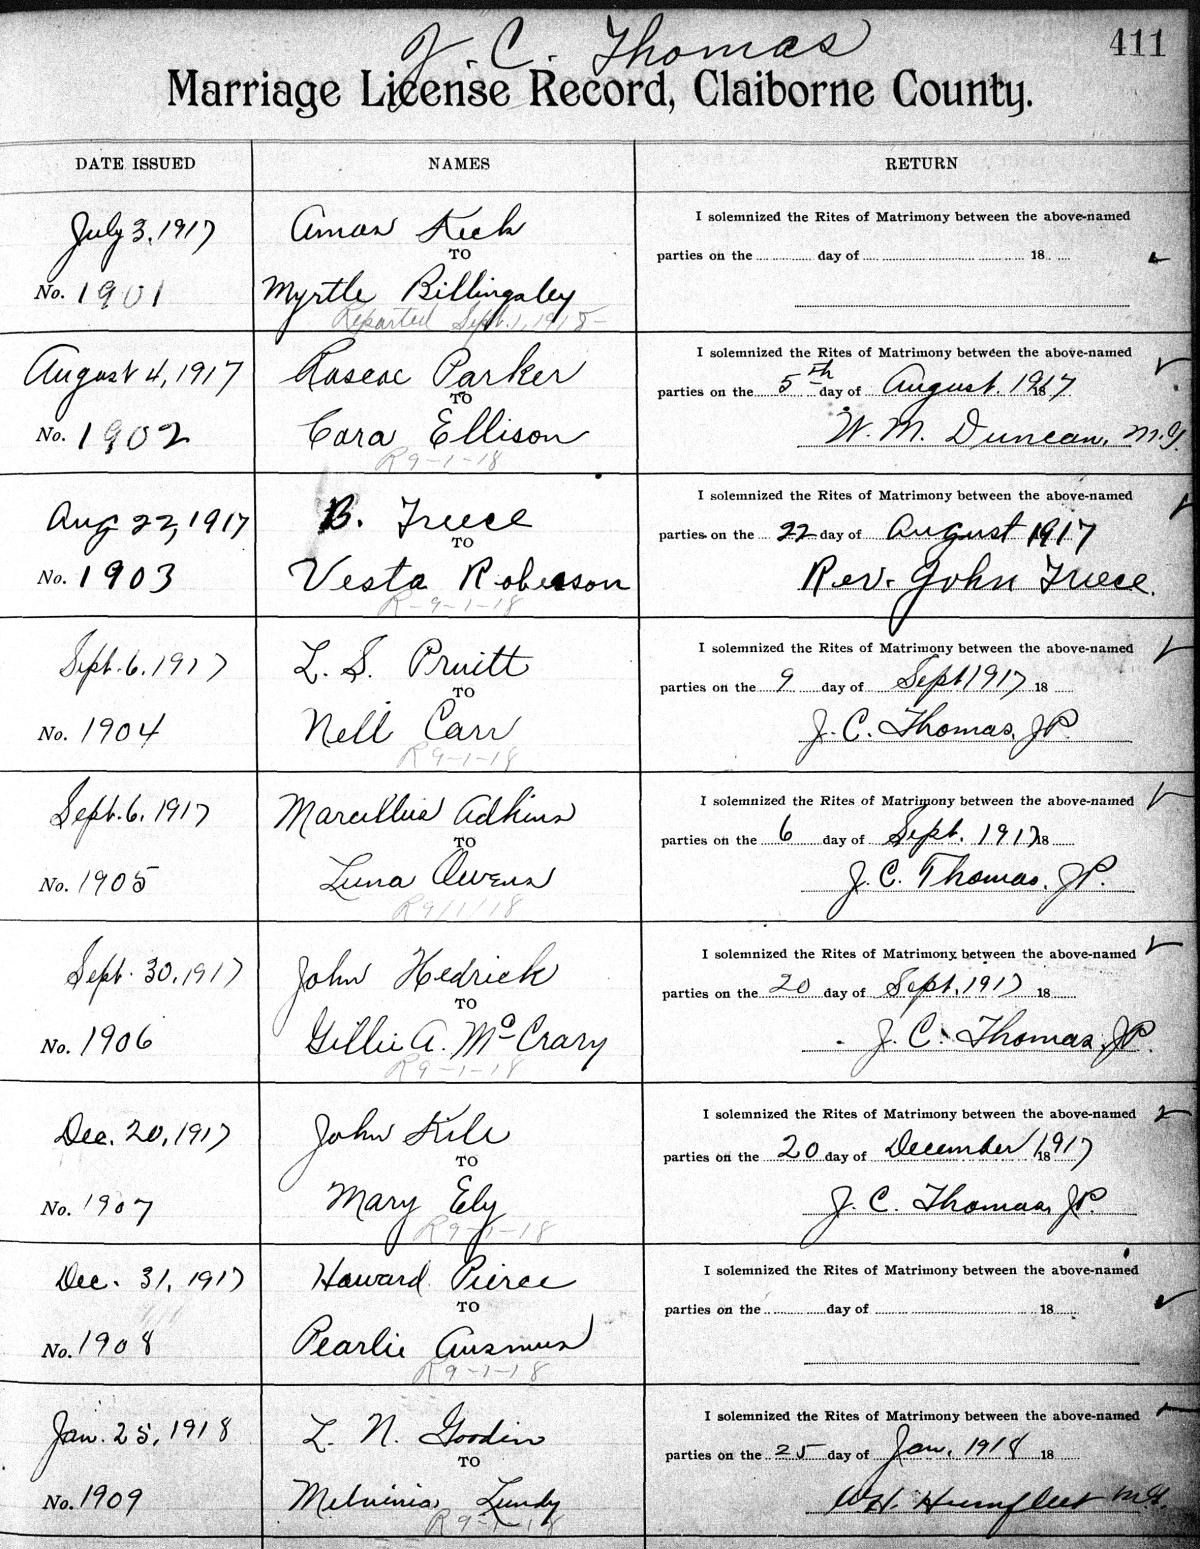 J. C. Thomas
411
Marriage License Record, Claiborne County.
DATE ISSUED NAMES RETURN
July 3, 1917 Amos Keck I solemnized the Rites of Matrimony between the above-named
TO parties on the day of 18
No. 1901 Myrtle Billingsley
Reported Sept. 1, 1918
August 4, 1917 Roscoe Parker I solemnized the Rites of Matrimony between the above-named
TO parties on the 5th day of August. 1917 18
No. 1902 Cora Ellison W. M. Duncan, M.G.
R9-1-18
Aug 22, 1917 B. Treece I solemnized the Rites of Matrimony between the above-named
TO parties on the 22 day of August 1917
No. 1903 Vesta Roberson Rev. John Treece.
R-9-1-18
Sept. 6, 1917 L. S. Pruitt I solemnized the Rites of Matrimony between the above-named
TO parties on the 9 day of Sept 1917 18
No. 1904 Nell Carr J. C. Thomas, JP.
R9-1-18
Sept. 6, 1917 Marcellus Adkins I solemnized the Rites of Matrimony between the above-named
TO parties on the 6 day of Sept. 1917 18
No. 1905 Luna Owens J. C. Thomas, JP.
R9/1/18
Sept. 30, 1917 John Hedrick I solemnized the Rites of Matrimony between the above-named
TO parties on the 20 day of Sept. 1917 18
No. 1906 Gillie A. McCrary J. C. Thomas, JP.
R9-1-18
Dec. 20, 1917 John Kile I solemnized the Rites of Matrimony between the above-named
TO parties on the 20 day of December 1917 18
No. 1907 Mary Ely J. C. Thomas, JP.
R9-1-18
Dec. 31, 1917 Howard Pierce I solemnized the Rites of Matrimony between the above-named
TO parties on the day of 18
No. 1908 Pearlie Ausmus
R9-1-18
Jan. 25, 1918 L. N. Goodin I solemnized the Rites of Matrimony between the above-named
TO parties on the 25 day of Jan. 1918 18
No. 1909 Melvinia Lundy W.H. Humfleet M.G.
R9-1-18